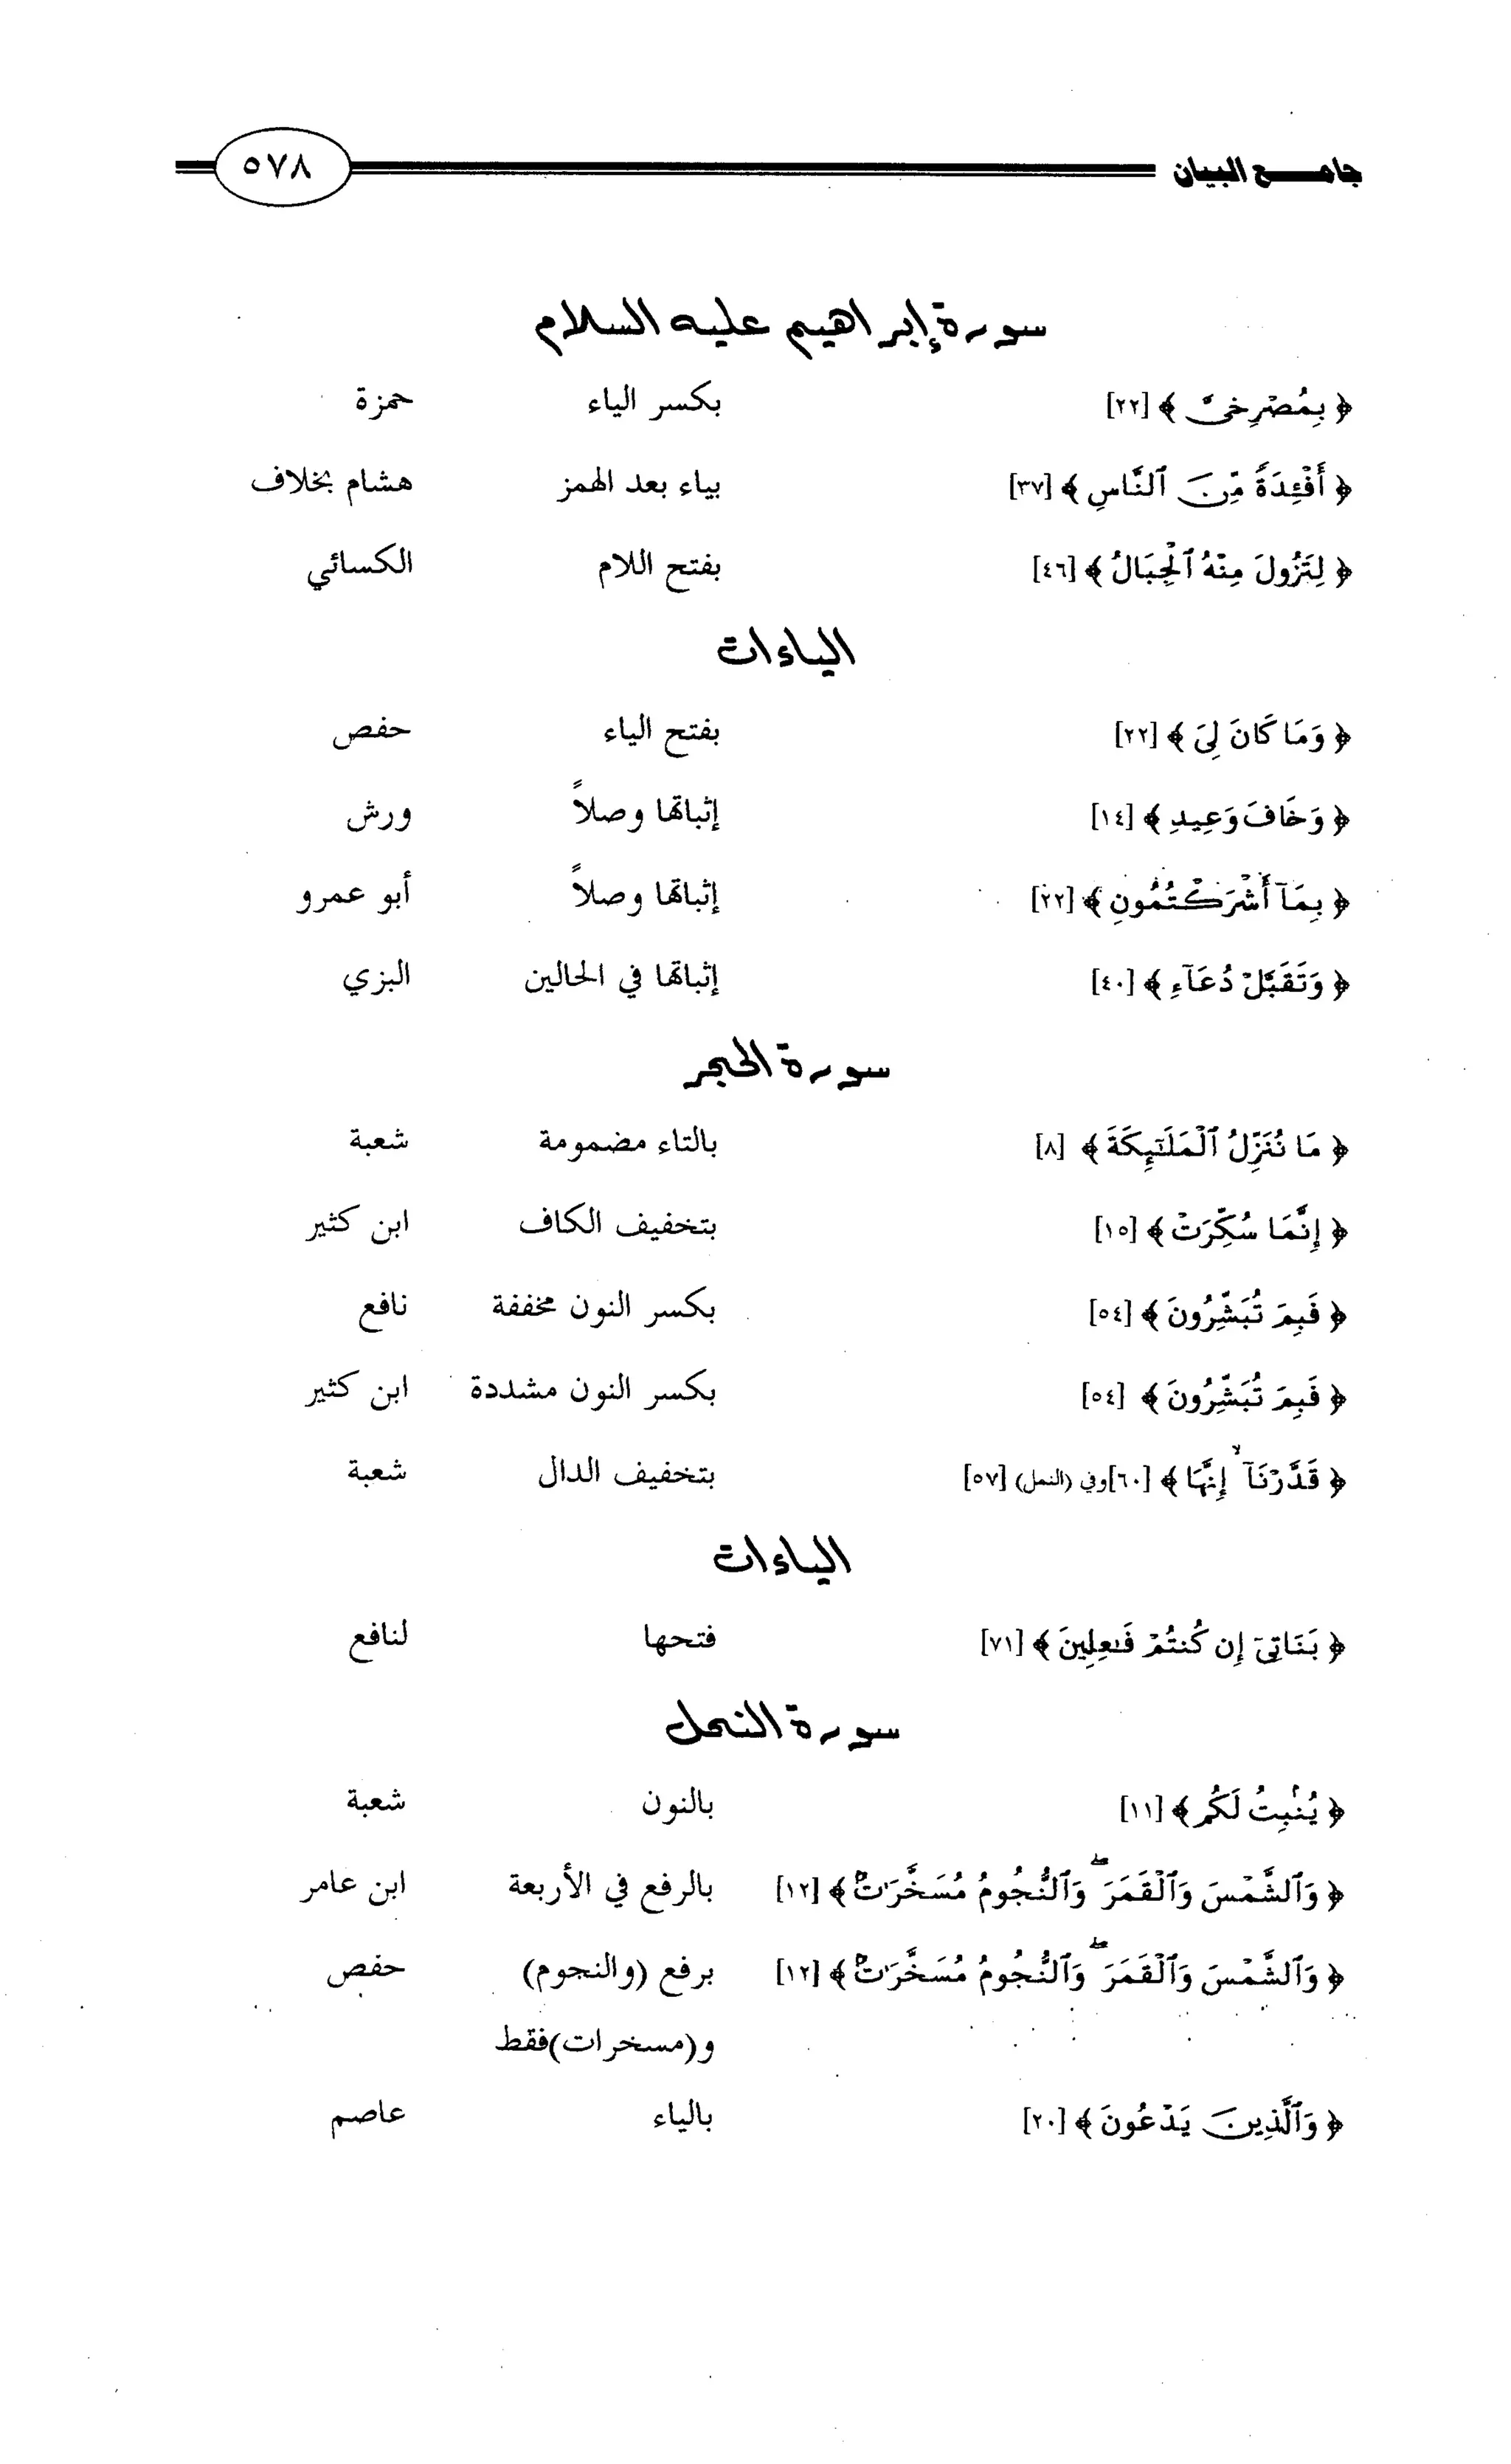 جامع البيان ٥٧٨
سورة إبراهيم عليه السلام
﴿ بِمُصْرِخِىَّ ﴾ [٢٢] بكسر الياء حمزة
﴿ أَفْئِدَةً مِّنَ ٱلنَّاسِ ﴾ [٣٧] بياء بعد الهمز هشام بخلاف
﴿ لِتَزُولَ مِنْهُ ٱلْجِبَالُ ﴾ [٤٦] بفتح اللام الكسائي
الياءات
﴿ وَمَا كَانَ لِىَ ﴾ [٢٢] بفتح الياء حفص
﴿ وَخَافَ وَعِيدِ ﴾ [١٤] إثباتها وصلاً ورش
﴿ بِمَآ أَشْرَكْتُمُونِ ﴾ [٢٢] إثباتها وصلاً أبو عمرو
﴿ وَتَقَبَّلْ دُعَآءِ ﴾ [٤٠] إثباتها في الحالين البزي
سورة الحجر
﴿ مَا نُنَزِّلُ ٱلْمَلَٰٓئِكَةَ ﴾ [٨] بالتاء مضمومة شعبة
﴿ إِنَّمَا سُكِّرَتْ ﴾ [١٥] بتخفيف الكاف ابن كثير
﴿ فَبِمَ تُبَشِّرُونَ ﴾ [٥٤] بكسر النون مخففة نافع
﴿ فَبِمَ تُبَشِّرُونَ ﴾ [٥٤] بكسر النون مشددة ابن كثير
﴿ قَدَّرْنَآ ۙ إِنَّهَا ﴾ [٦٠] وفي (النمل) [٥٧] بتخفيف الدال شعبة
الياءات
﴿ بَنَاتِىٓ إِن كُنتُمْ فَٰعِلِينَ ﴾ [٧١] فتحها لنافع
سورة النحل
﴿ يُنۢبِتُ لَكُم ﴾ [١١] بالنون شعبة
﴿ وَٱلشَّمْسَ وَٱلْقَمَرَ ۖ وَٱلنُّجُومُ مُسَخَّرَٰتٌۢ ﴾ [١٢] بالرفع في الأربعة ابن عامر
﴿ وَٱلشَّمْسَ وَٱلْقَمَرَ ۖ وَٱلنُّجُومُ مُسَخَّرَٰتٌۢ ﴾ [١٢] برفع (والنجوم) حفص
و(مسخرات)فقط
﴿ وَٱلَّذِينَ يَدْعُونَ ﴾ [٢٠] بالياء عاصم